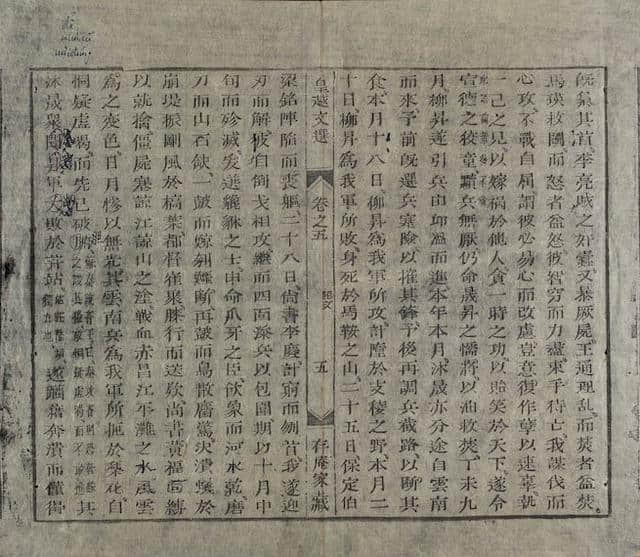 既梟其首李亮賊之奸蠹又暴厥屍王通理亂而焚者益焚
馬瑛救鬭而怒者益怒彼智窮而力盡束手待亡我謀伐而
心攻不戰自屈謂彼必易心而改慮豈意復作孽以速辜執
一己之見以嫁禍於他人貪一時之功以貽笑於天下遂令
宣德之狡童黷兵無厭仍命晟昇之懦將以油救焚丁未九
月柳昇遂引兵由邱溫而進本年本月沐晟亦分途自雲南
而來予前既選兵塞險以摧其鋒予後再調兵截路以斷其
食本月十八日柳昇爲我軍所攻計墮於支棱之野本月二
十日柳昇爲我軍所敗身死於馬鞍之山二十五日保定伯
皇越文選 卷之五 五 存庵家藏
梁銘陣陷而喪軀二十八日尚書李慶計窮而刎首我遂迎
刃而解彼自倒戈相攻繼而四面添兵以包圍期以十月中
旬而殄滅爰選貔貅之士申命爪牙之臣飲象而河水乾磨
刀而山石缺一鼓而鯨刳鱷斷再鼓而鳥散麕驚决潰蟻於
崩堤振剛風於槁葉都督崔聚膝行而送欵尚書黃福面縛
以就擒僵屍塞諒江諒山之塗戰血赤昌江平灘之水風雲
爲之變色日月慘以無光其雲南兵爲我軍所扼於梨花自
恫疑虛喝而先已破膽其
沐晟衆聞昇軍大敗於芹站遂躪藉奔潰而僅得